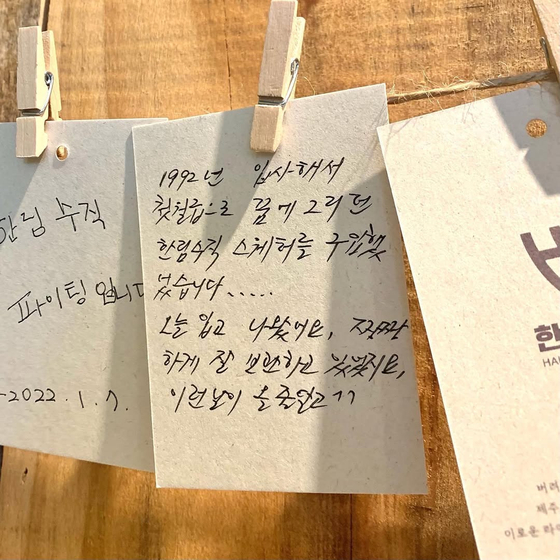 한림 수직
파이팅 입니다
2022.1.7.
1992년 입사해서
첫월급으로 꿈에 그리던
한림수직 스웨터를 구입했
었습니다.....
오늘 입고 나왔어요,
하게 잘 보관하고 있었지요,
이런날이 올줄알고ㄱㄱ
한
HA
버려
제주
이로운 라이